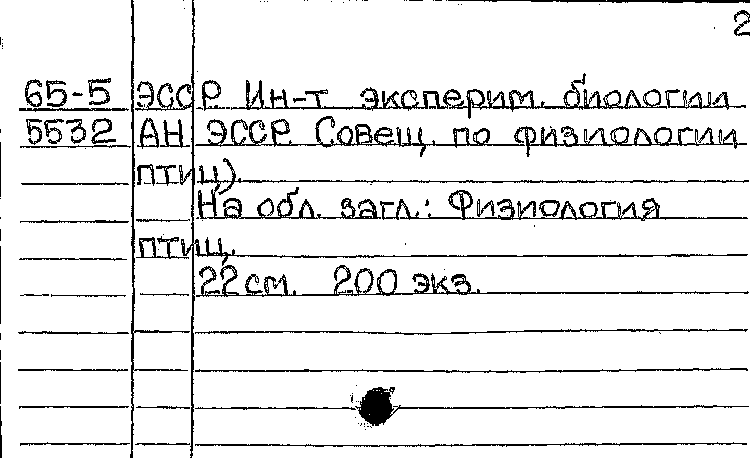 2
65-5 ЭССР. Ин-т эксперим. биологии
5532 АН ЭССР. Совещ. по физиологии
птиц).
На обл. загл.: Физиология
птиц.
22 см. 200 экз.